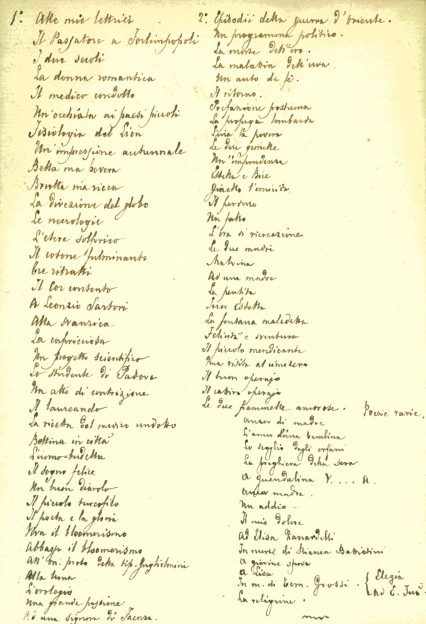 1.° Alle mie lettrici
Il Passatore a Forlimpopoli
I due secoli
La donna romantica
Il medico condotto
Un'occhiata ai paesi piccoli
Fisiologia del Lion
Un'impressione autunnale
Bella ma severa
Brutta ma ricca
La direzione del globo
Le necrologie
L'etere solforico
Il cotone fulminante
Tre ritratti
Il Cor contento
A Leonzio Sartori
Alla svanzica
La capricciosa
Un progetto scientifico
Lo studente di Padova
Un atto di contrizione
Il laureando
La ricetta del medico condotto
Bettina in città
L'uomo
Il sogno felice
Un buon diavolo
Il piccolo turcofilo
Il poeta e la gloria
Viva il bloomerismo
Abbasso il bloomerismo
All' proto della tip. Guglielmini
Alla luna
L'orologio
Una grande passione
Ad una signora di Faenza.
2.° Episodii della guerra d'oriente.
Un programma politico.
La morte dell'oro.
La malattia dell'uva.
Un auto de fé.
Il ritorno.
Prefazione postuma
La profuga lombarda
Livia la povera
Le due
Un'imprudenza
Estella e Bice
l'omicida
Il perdono
Un fallo
L'ora di ricreazione
Le due madri
Malvina
Ad una madre
La partita
Estella
La fontana maledetta
Felicità e sventura
Il piccolo mendicante
Una visita al cimitero
Il buon operajo
Il cattivo operajo
Le due fiammelle amorose.
Poesie varie.
Amor di madre.
bambina
Lo degli orfani
La preghiera della sera
A Guendalina V.... A.
Amor madre.
Un addio.
Il mio dolore
Ad Elisa Zanardelli
In morte di Bianca
A giovine sposa
A Lisa
In m. di Grossi.
Elegia
Ad E.
La religione.